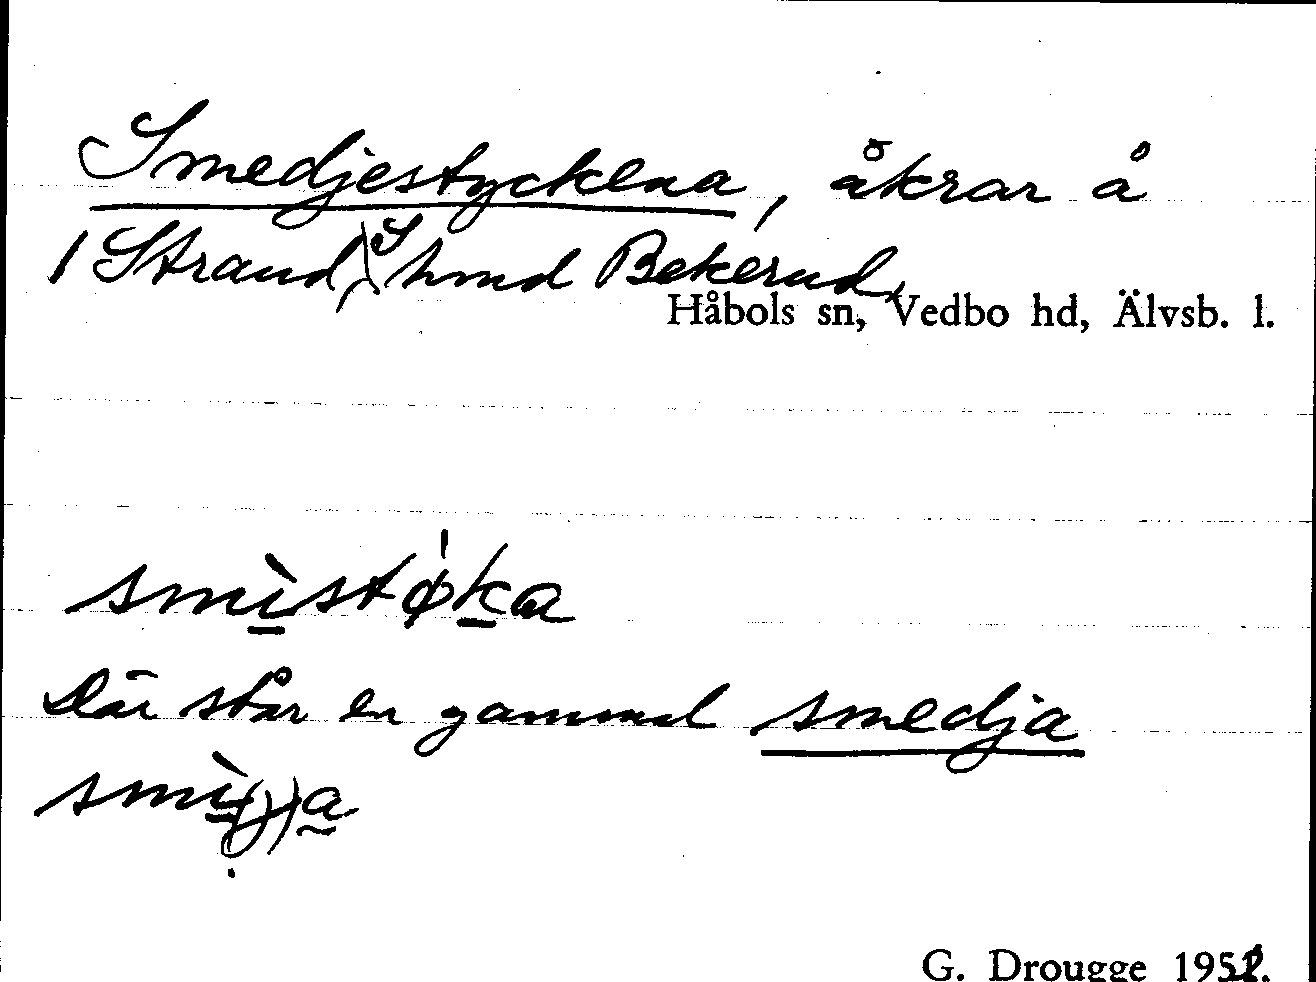 Smedjestyckena, åkrar å
1 Strand, S hmd Bekerud,
Håbols sn, Vedbo hd, Älvsb. l.
smìstø̍ka
Där står en gammal smedja
smìj(j)a
G. Drougge 1952.